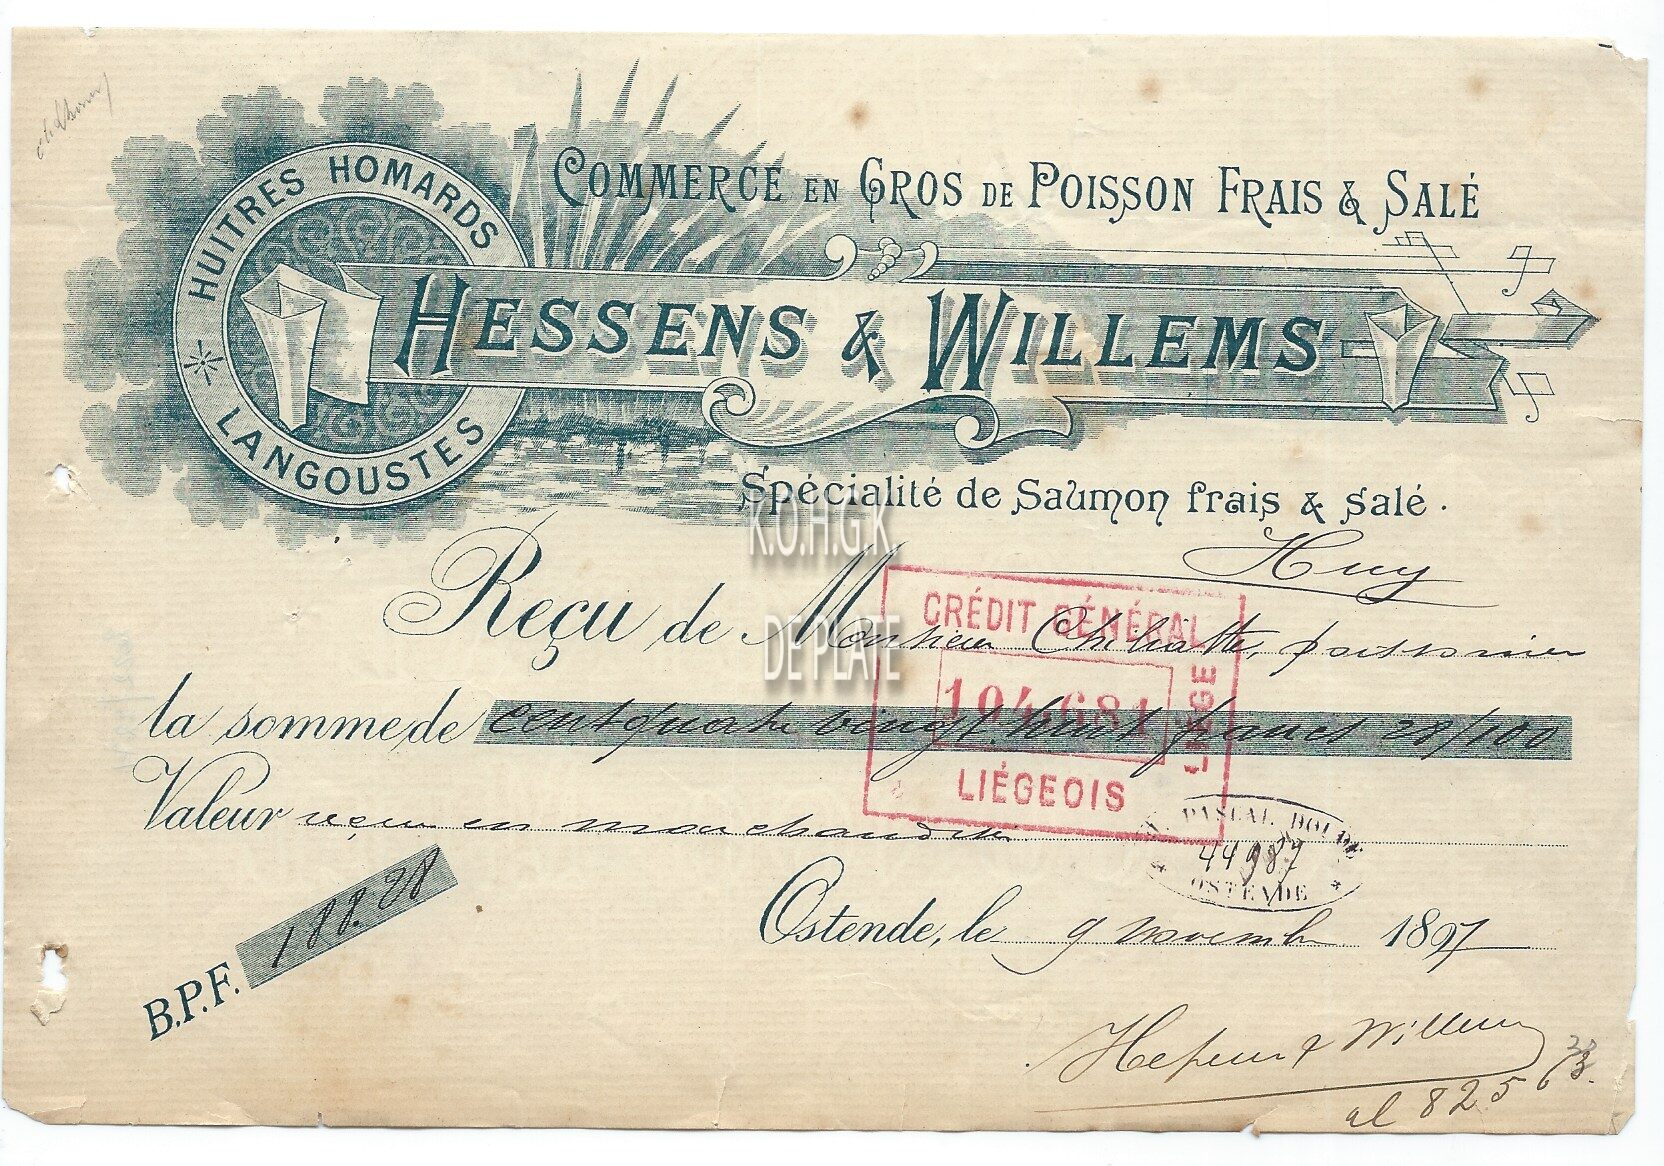 COMMERCE EN GROS DE POISSON FRAIS & SALÉ
HUITRES HOMARDS
LANGOUSTES
HESSENS & WILLEMS
Spécialité de Saumon frais & salé.
K.O.H.G.K
DE PLATE
Huy
Reçu de Monsieur poissonnier
la somme de cent quatre vingt huit francs 28/100
Valeur reçue en marchandises
CRÉDIT GÉNÉRAL
104681
LIÉGEOIS
LIÈGE
PASCAL
44987
OSTENDE
B.P.F. 188.28
Ostende, le 9 novembre 1897
Hessens & Willems
al 825